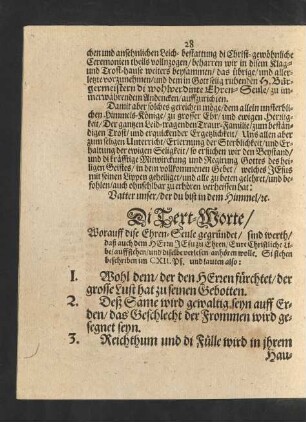 28
chen und ansehnlichen Leich-bestattung di Christ-gewöhnliche
Ceremonien theils vollzogen/ beharren wir in disem Klag-
und Trost-hause weiters beysammen/ das übrige/ und aller-
letzte vorzunehmen/ und dem in Gott seig ruhenden H. Bür-
germeistern di wohlverdente Ehren-Seule/ zu im-
merwährendem Andencken/ auffzurichten.
Damit aber solches gereichen möge/ dem allein unsterbli-
chen Himmels-Könige/ zu grosser Ehr/ und ewigen Herrlig-
keit/ Der gantzen Leid-tragenden Traur-Familie/ zum bestän-
digen Trost/ und erquickender Ergetzlichkeit/ Uns allen aber
zum seligen Unterricht/ Erlernung der Sterblichkeit/ und Er-
haltung der ewigen Seligkeit/ so ersuchen wir den Beystand/
und di kräfftige Mitwirckung und Regirung Gottes des hei-
ligen Geistes/ in dem vollkommenen Gebet/ welches JEsus
mit seinen Lippen geheiliget/ und alle zu beten gelehret/ und be-
fohlen/ auch ohnfehlbar zu erhören verheissen hat:
Vatter unser/ der du bist in dem Himmel/ rc.
Di Text-Worte/
Worauff dise Ehren-Seule gegründet/ sind werth/
daß auch dem HErrn JEsu zu Ehren/ Eure Christliche Li-
be/ auffstehen/ und diselbe vorlesen anhören wolle, Si stehen
beschriben im CXII. Ps. und lauten also:
1. Wohl dem/ der den HErren fürchtet/ der
grosse Lust hat zu seinen Gebotten.
2. Deß Same wird gewaltig seyn auff Er-
den/ das Geschlecht der Frommen wird ge-
segnet seyn.
3. Reichthum und di Fülle wird in jhrem
Hau-